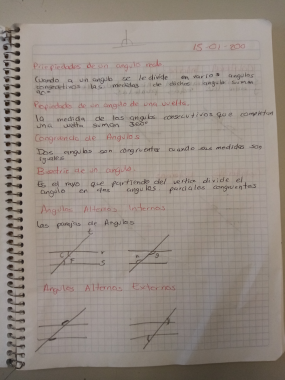 15 - 01 - 200
Propiedades de un angulo recto
Cuando a un angulo se le divide en varios angulos
consecutivos las medidas de dichos angulo suman
90°
Propiedades de un angulo de una vuelta
la medida de los angulos consecutivos que completan
una vuelta suman 360°
Congruencia de Angulos
Dos angulos son congruentes cuando sus medidas son
iguales
Bisectriz de un angulo
Es el rayo que partiendo del vertice divide el
angulo en dos angulos parciales congruentes
Angulos Alternos Internos
Las parejas de Angulos
Angulos Alternos Externos